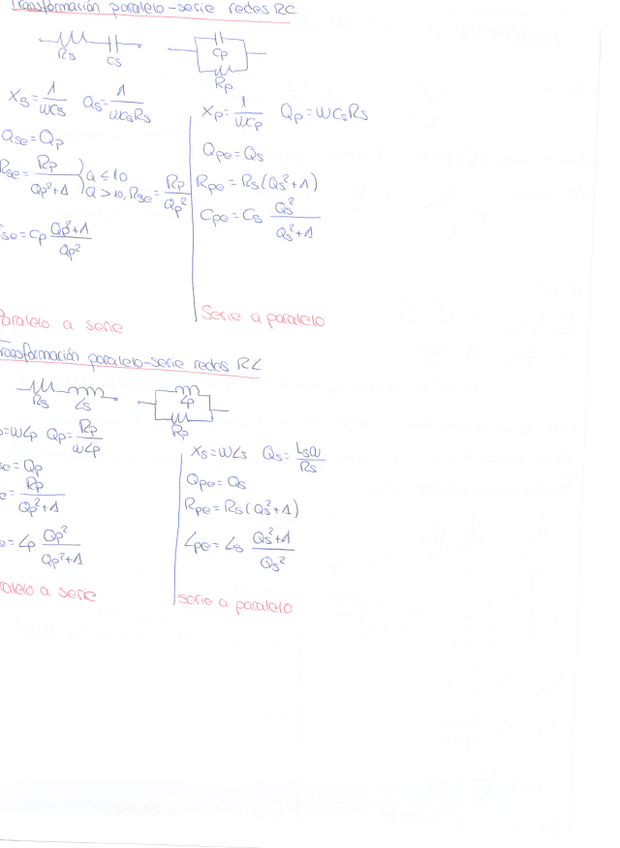 Transformación paralelo-serie redes RC
Rs Cs
Cp
Rp
Xs = 1/(ωCs) Qs = 1/(ωCsRs)
Qse = Qp
Rse = Rp/(Qp²+1) } Q ≤ 10
Q > 10, Rse = Rp/Qp²
se = Cp (Qp²+1)/Qp²
Paralelo a serie
Xp = 1/(ωCp) Qp = ωCsRs
Qpe = Qs
Rpe = Rs(Qs²+1)
Cpe = Cs Qs²/(Qs²+1)
Serie a paralelo
Transformación paralelo-serie redes RL
Rs Ls
Lp
Rp
=ωLp Qp = Rp/(ωLp)
se = Qp
e = Rp/(Qp²+1)
e = Lp Qp²/(Qp²+1)
ralelo a serie
Xs = ωLs Qs = Lsω/Rs
Qpe = Qs
Rpe = Rs(Qs²+1)
Lpe = Ls (Qs²+1)/Qs²
serie a paralelo